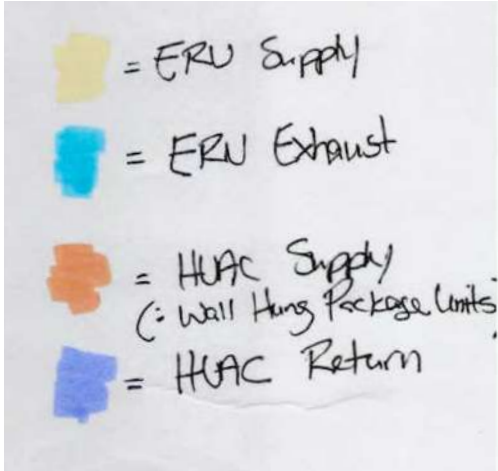 = ERV Supply
= ERV Exhaust
= HVAC Supply
(: Wall Hung Package Units
= HVAC Return